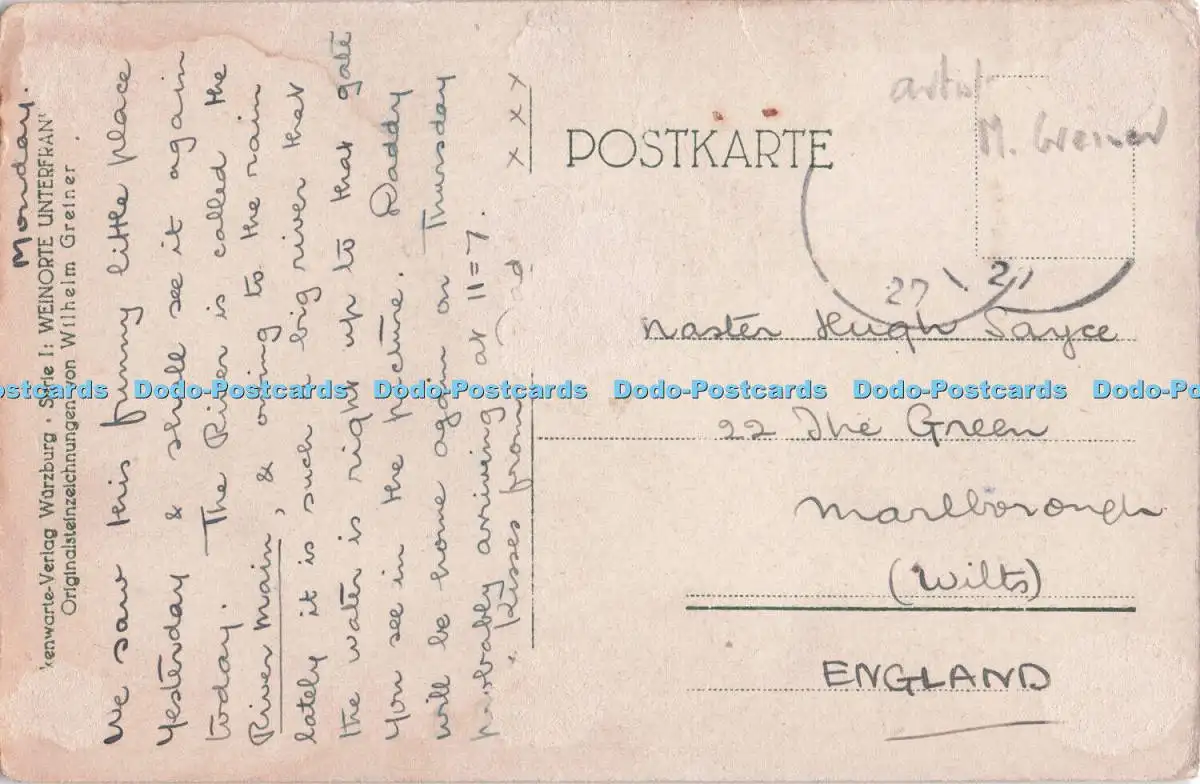 Monday.
kenwarte-Verlag Würzburg · Serie I: WEINORTE UNTERFRAN
Originalsteinzeichnungen von Wilhelm Greiner
We saw this funny little place
yesterday & shall see it again
today. The River is called the
River Main, & owing to the rain
lately it is such a big river that
the water is right up to that gate
you see in the picture. Daddy
will be home again on Thursday
probably arriving at 11=7.
Kisses from Dad x x x
artist
M. Greiner
POSTKARTE
27
Master Hugh Sayce
Dodo-Postcards Dodo-Postcards Dodo-Postcards Dodo-Postcards Dodo-Postcards
22 The Green
Marlborough
(Wilts)
ENGLAND